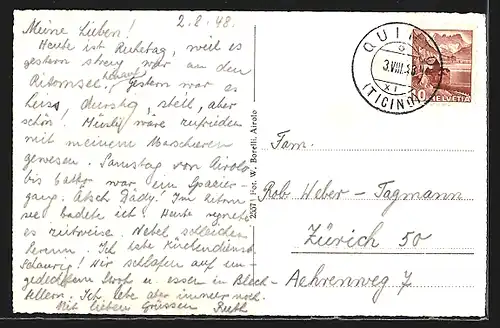 2.8.48.
Meine Lieben!
Heute ist Ruhetag, weil es
gestern streng war an den
Ritomsee. hinauf Gestern war es
heiss, durstig, steil, aber
schön! Müsly wäre zufrieden
mit meinem Marschieren
gewesen. Samstag von Airolo
bis war ein Spazier-
gang. Ätsch Dädy! Im Ritom
see badete ich. Heute regnets
es zeitweise. Nebel schleichen
herum. Ich habe Küchendienst.
Schaurig! Wir schlafen auf un-
gedecktem Stroh u. essen in Blech-
tellern. Ich lebe aber immer noch.
Mit lieben Grüssen Ruth
2057 Fot. W. Borelli, Airolo
QUINTO
3.VIII.48
XI
(TICINO)
HELVETIA
Fam.
Rob. Weber - Tagmann
Zürich 50
Aehrenweg 7